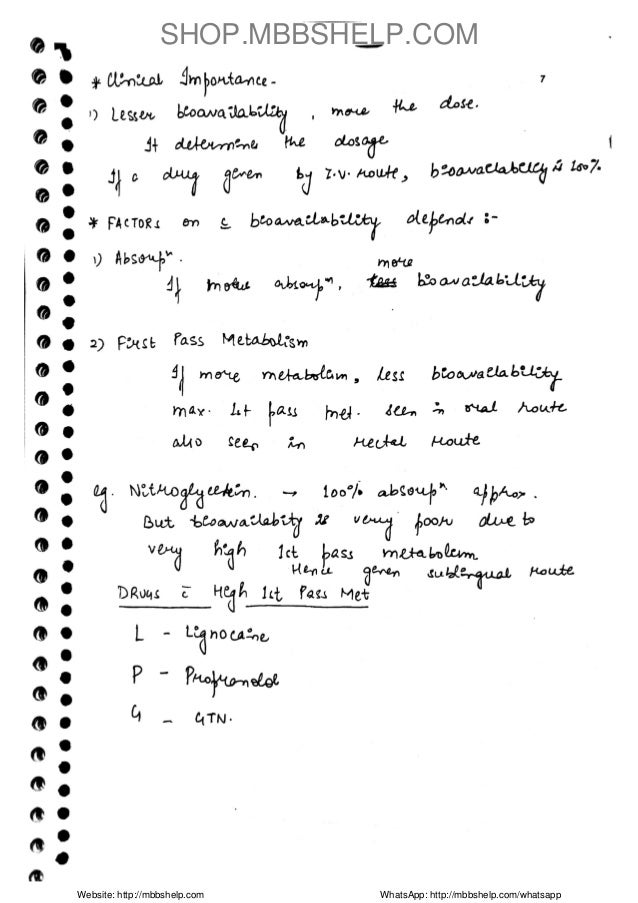 SHOP.MBBSHELP.COM
* Clinical Importance - 7
1) Lesser bioavailability, more the dose.
It determine the dosage
If a drug given by I.V. route, bioavailability is 100%
* FACTORS on c bioavailability depends :-
1) Absorpⁿ.
more
If more absorpⁿ, less bioavailability
2) First Pass Metabolism
If more metabolism, less bioavailability
max. 1st pass met. seen in oral route
also seen in rectal route
eg. Nitroglycerin. → 100% absorpⁿ approx.
But bioavailabity is very poor due to
very high 1st pass metabolism
Hence given sublingual route
DRUGS c̄ High 1st Pass Met
L - Lignocaine
P - Propranolol
G - GTN.
Website: http://mbbshelp.com WhatsApp: http://mbbshelp.com/whatsapp